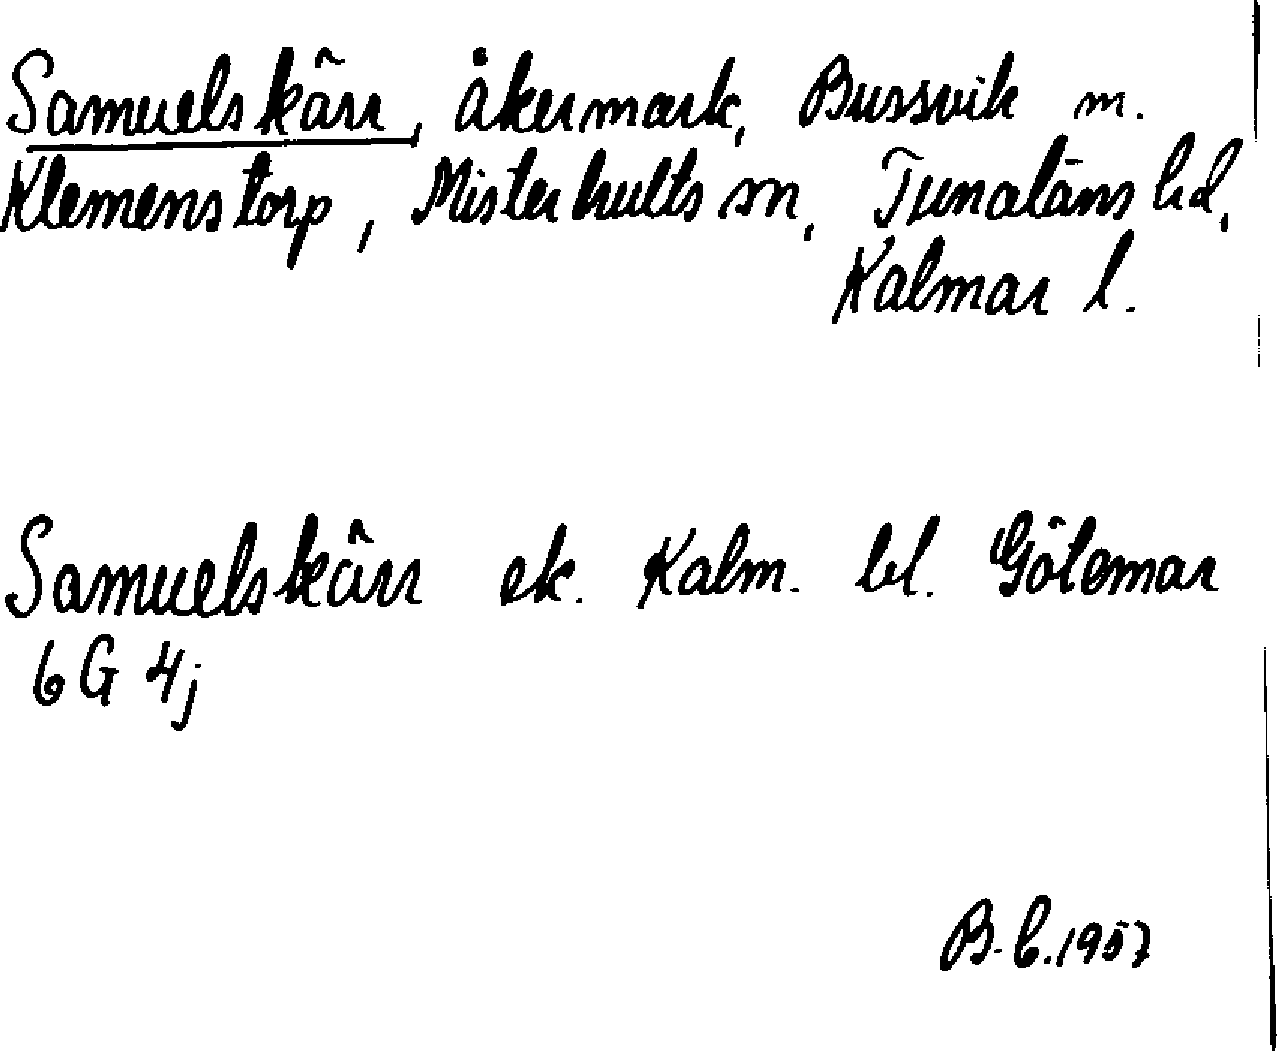 Samuelskärr, åkermark, Bussvik m.
Klemenstorp, Misterhults sn, Tunaläns hd,
Kalmar l.
Samuelskärr ek. Kalm. bl. Götemar
6G 4j
B. C. 1957